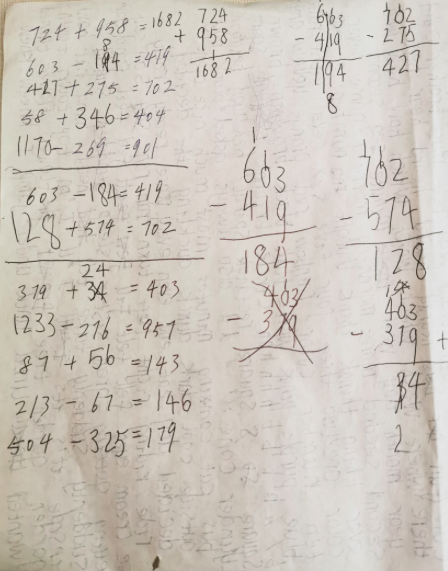 724 + 958 = 1682
603 - 184 = 419
427 + 275 = 702
58 + 346 = 404
1170 - 269 = 901
603 - 184 = 419
128 + 574 = 702
379 + 24 = 403
1233 - 276 = 957
87 + 56 = 143
213 - 67 = 146
504 - 325 = 179
724
+ 958
1
1682
603
- 419
194
8
702
- 275
427
1
603
- 419
184
403
- 379
1
702
- 574
128
403
- 379
34
2